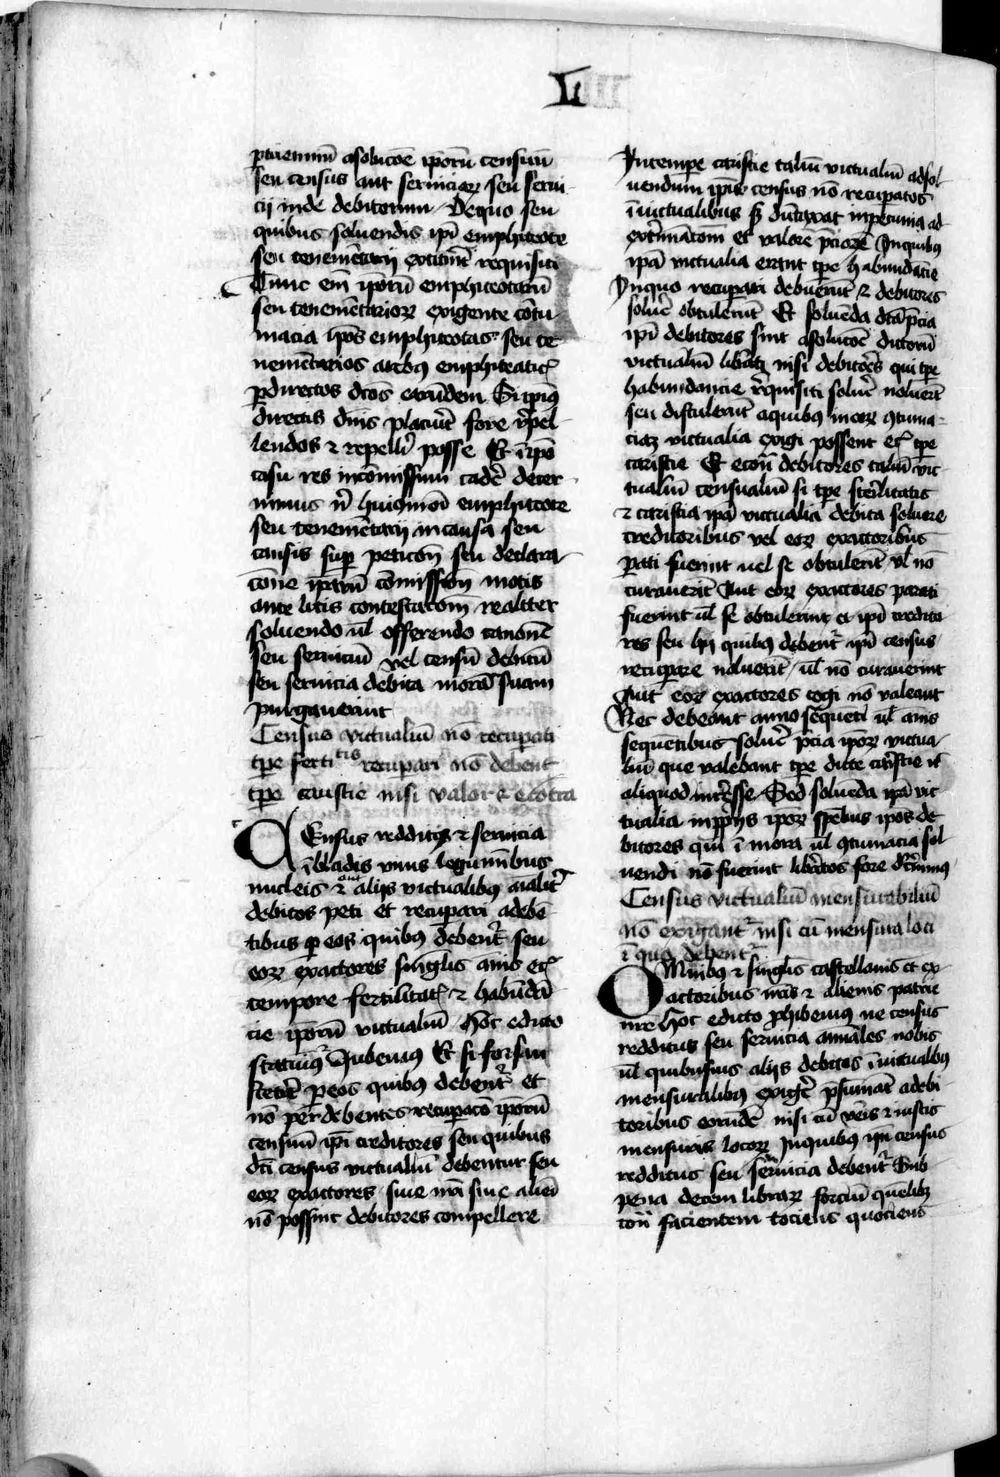 L
ptinentiu asolucoe iporu censuu
seu census aut serviciorz seu servi
cij inde debitorum Dequo seu
quibus soluendis ipi emphiteote
seu tenemetarij extiterit requisiti
Cunc em iporu emphiteotaru
seu tenemetariorz exigente cotu
macia ipos emphiteotas seu te
nemetarios arebus emphiteatic
pdirectos dnos eorudem Si ipius
directis dnis placuerit fore repel
lendos & repelli posse Et i ipo
casu res incomissum cadere deter
minus nisi huiusmodi emphiteote
seu tenemetarij incausa seu
causis super peticon seu declara
cone iparu comission motis
ante litis contestacom realiter
soluendo ul offerendo canone
seu serviciu vel censu debitu
seu servicia debita mora suam
purgauerint
Census victualiu no recuperati
tpe fertitis recuperari no debent
tpe caristie nisi valor & ecotra
CEnsus redditus & servicia
i bladis vinis leguminibus
nucleis & alijs victualibus analiter
debitos peti et recuperari adebe
tibus p eos quibus debentur seu
eorz exactores singulis anis et
tempore fertilitat & habuda
cie ipou victualiu hoc edicto
statuimus Jubemus Et si forsan
steterit p eos quibus debentur et
no per debentes recuperaco iporu
censuu ipi creditores seu quibus
dti census victualiu debentur seu
eorz exactores siue nra siue alien
no possint debitores compellere
Intempe caristie taliu victualiu adsol
uendum ipius census no recuperatos
i victualibus sed dutaxat inpecunia ad
extimatom et valore pciorz Inquibus
ipa victualia erant tpe habundacie
Inquo recuperari debuerut & debitores
soluere obtulerut Et soluenda dta pcia
ipi debitores sint asolucoe dictoru
victualiu liberati nisi debitores qui tpe
habundancie requisiti soluere noluerit
seu distulerit aquibus inorz cotuma
ciaz victualia exigi possent et tpe
caristie Et econ debitores taliu vic
tualiu censualiu si tpe sterilitatis
& caristia ipa victualia debita soluere
creditoribus vel eorz exactoribus
parati fuerint uel se obtulerit ul no
curauerit Aut eorz exactores parati
fuerint ul se obtulerint et ipi credito
res seu hij quibus debentur ipi census
recuperare noluerit ul no curauerint
Aut eorz exactores cogi no valeant
Nec debeant anno sequeti ul anis
sequetibus soluere pcia iporz victua
liu que valebant tpe dicte caristie ul
aliquod interesse Sed soluenda ipa vic
tualia inpprijs iporz spebus ipos de
bitores qui i mora ul cotumacia sol
uendi no fuerint liberatos fore decernimus
Census victualiu mensurabiliu
no exigantur nisi cu mensura loci
i quo debentur
OMnibus & singulis castellanis et ex
actoribus nris & alienis patrie
nre Hoc edicto prohibemus ne census
redditus seu servicia annales nobis
ul quibusuis alijs debitos i victualibus
mensuralibus exigere psumat adebi
toribus eorude nisi cu veris & iustis
mensuris locorz Inquibus ipi census
redditus seu servicia debentur Sub
pena decem librarz forciu quelibet
contra facientem tociens quociens